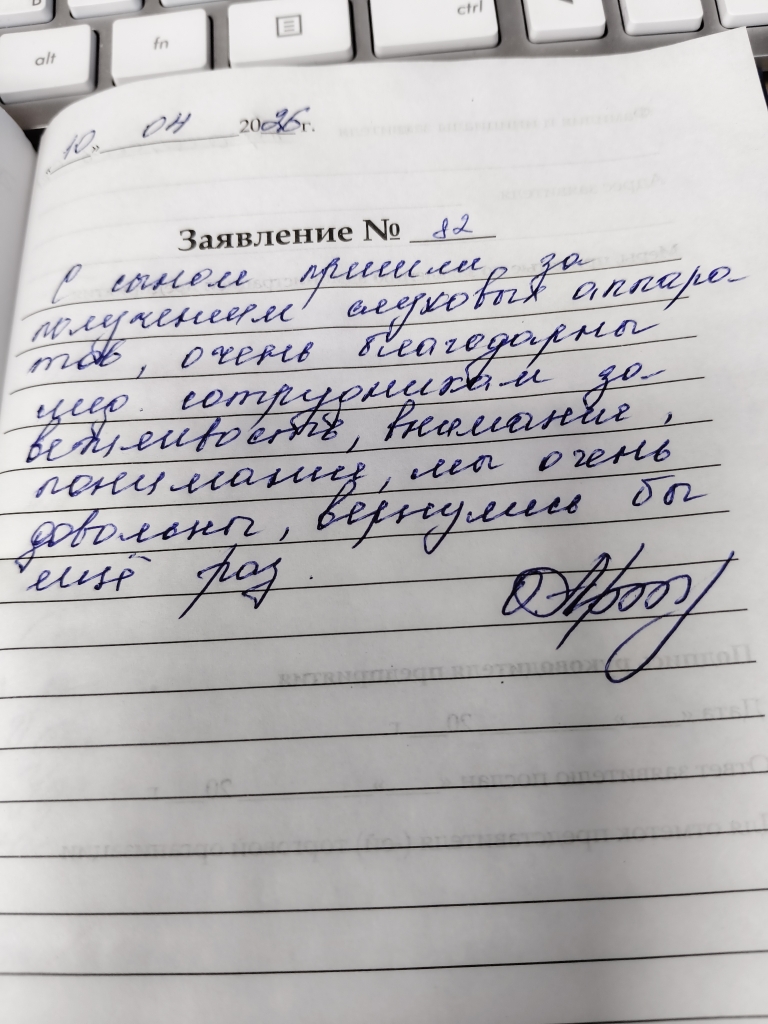 alt
fn
ctrl
«10» 04 2026 г.
Заявление № 82
С сыном пришли за
получением слуховых аппара-
тов, очень благодарны
сотрудникам за
вежливость, внимание,
понимание, мы очень
довольны, вернулись бы
ещё раз.